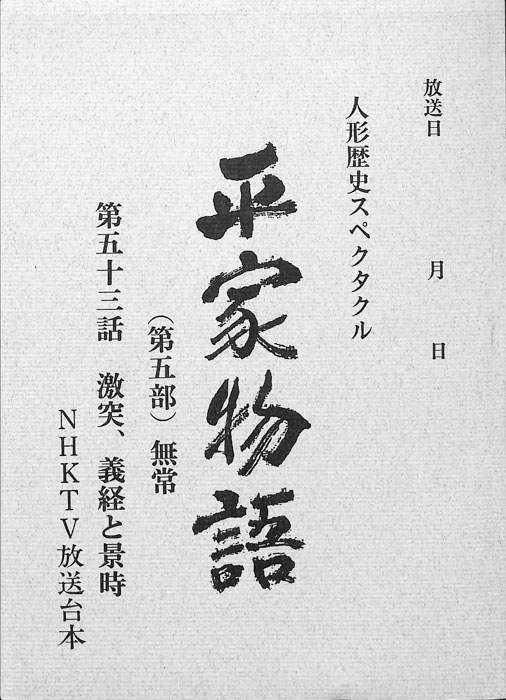 放送日　月　日
人形歴史スペクタクル
平家物語
（第五部）無常
第五十三話　激突、義経と景時
NHKTV放送台本